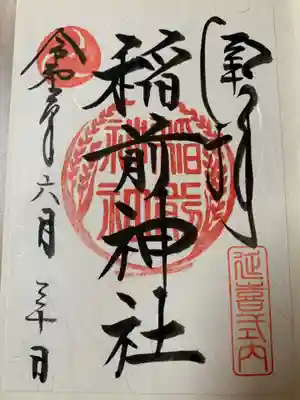 奉拝
延喜式内
稲前神社
稲前神社
令和
六月
三十日